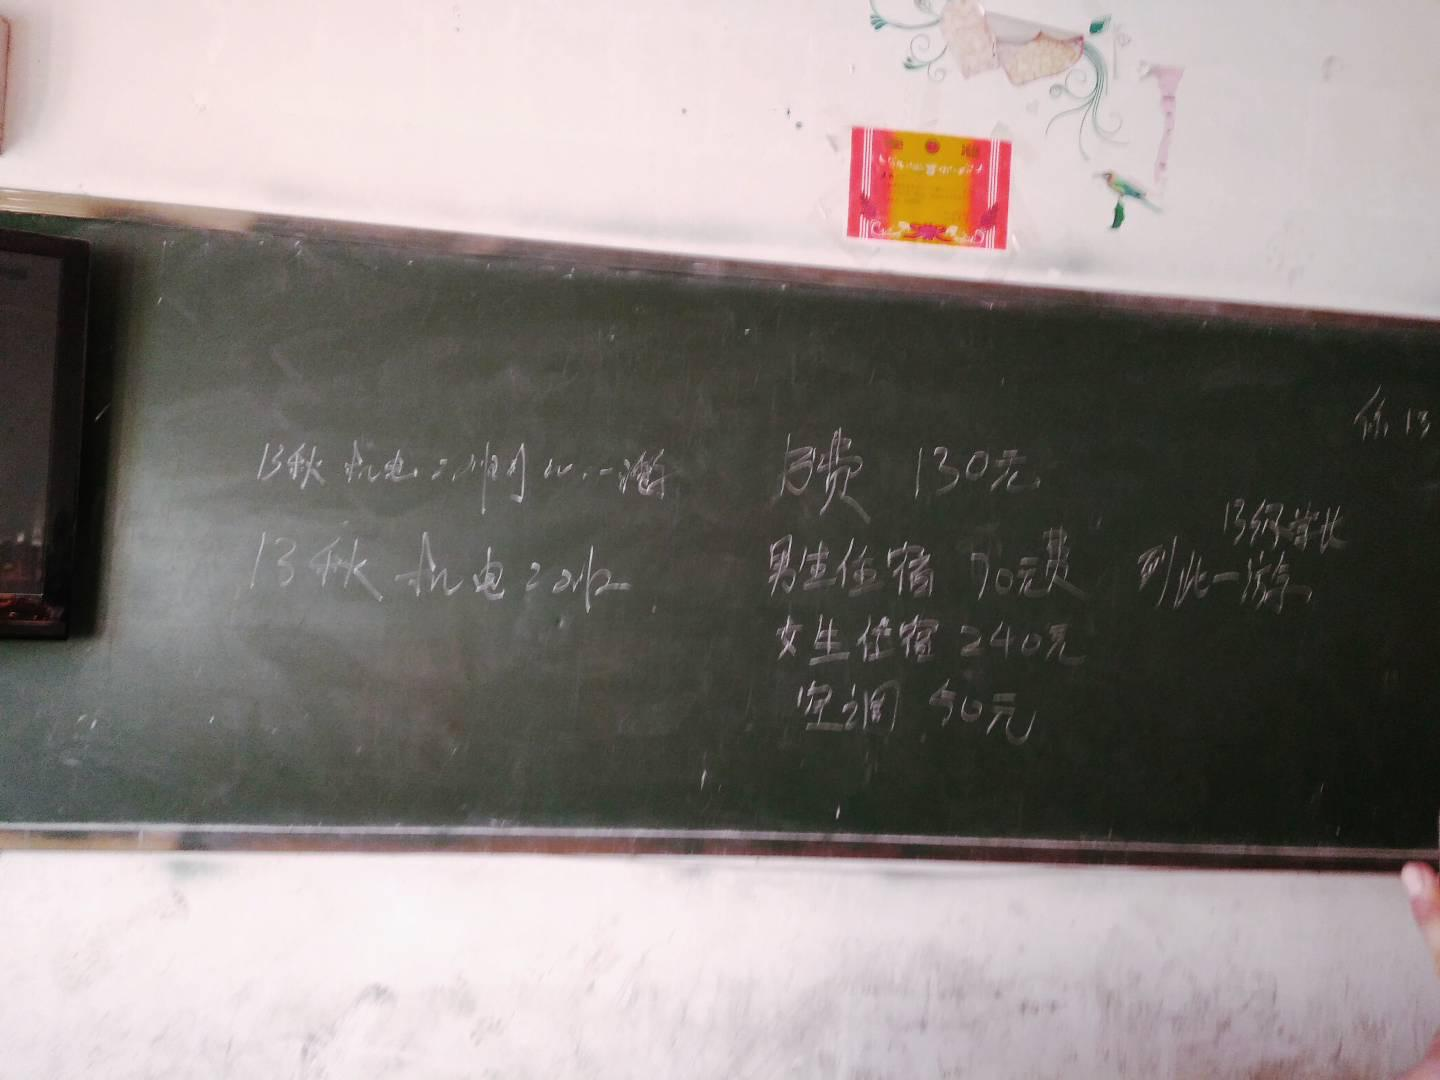 13秋 机电二班到此一游
13秋 机电二班
费 130元
男生住宿 70元费
女生住宿 240元
空调 50元
13级学长
到此一游
13